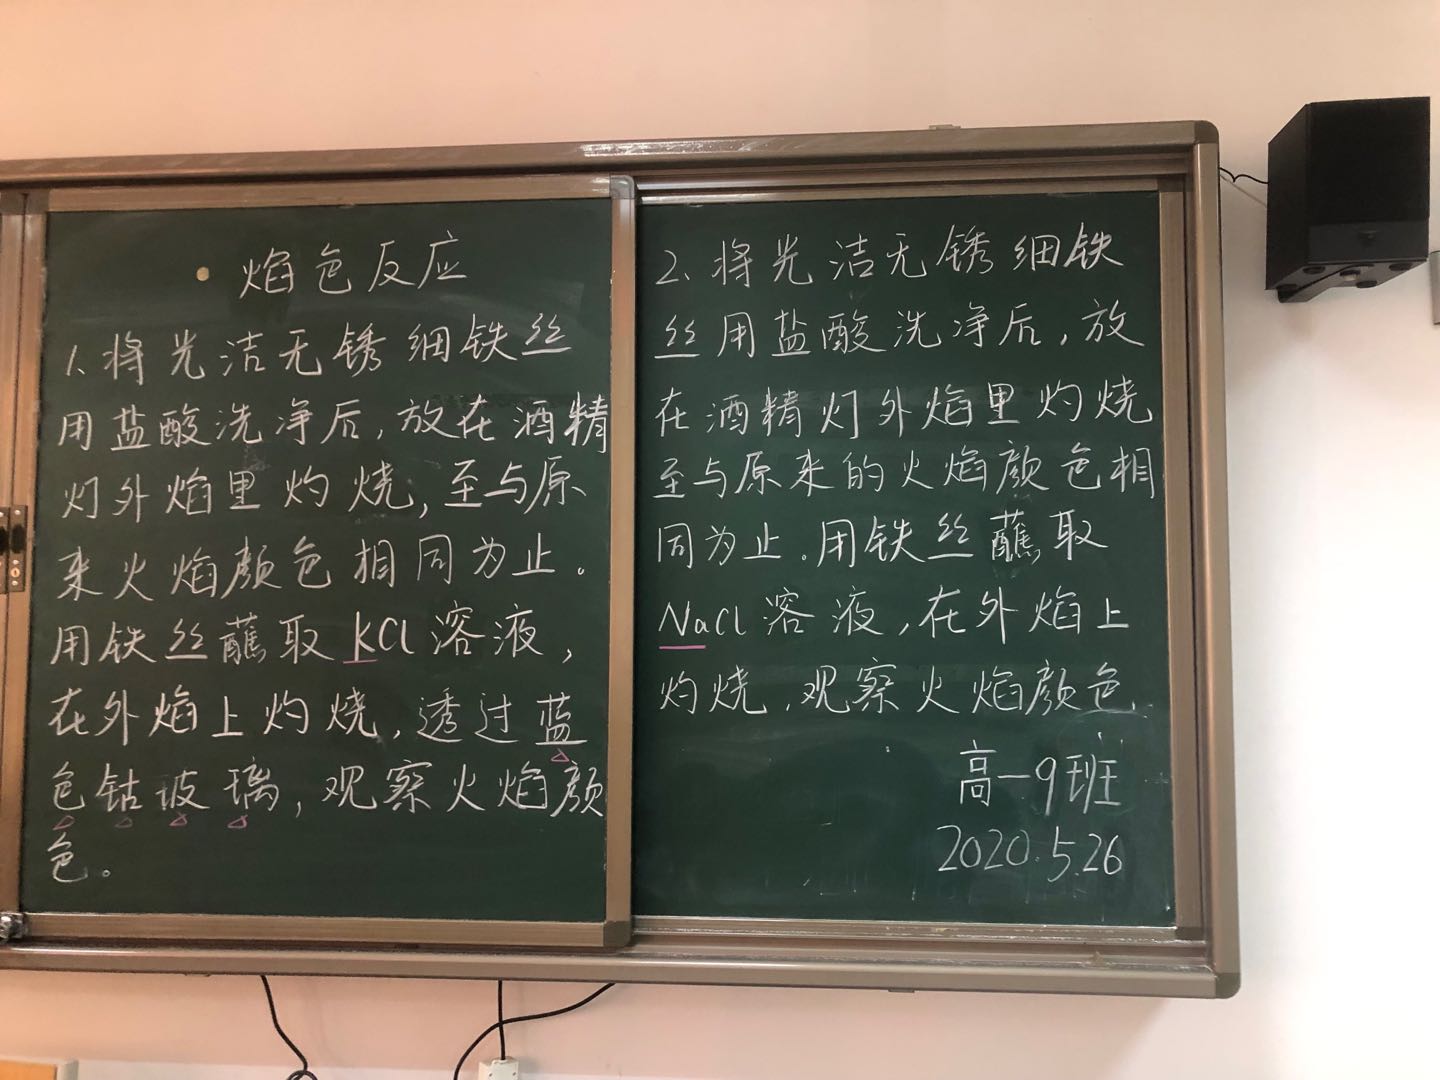 焰色反应
1、将光洁无锈细铁丝
用盐酸洗净后,放在酒精
灯外焰里灼烧,至与原
来火焰颜色相同为止。
用铁丝蘸取KCl溶液,
在外焰上灼烧,透过蓝
色钴玻璃,观察火焰颜
色。
2、将光洁无锈细铁
丝用盐酸洗净后,放
在酒精灯外焰里灼烧
至与原来的火焰颜色相
同为止.用铁丝蘸取
NaCl溶液,在外焰上
灼烧,观察火焰颜色
高一9班
2020.5.26